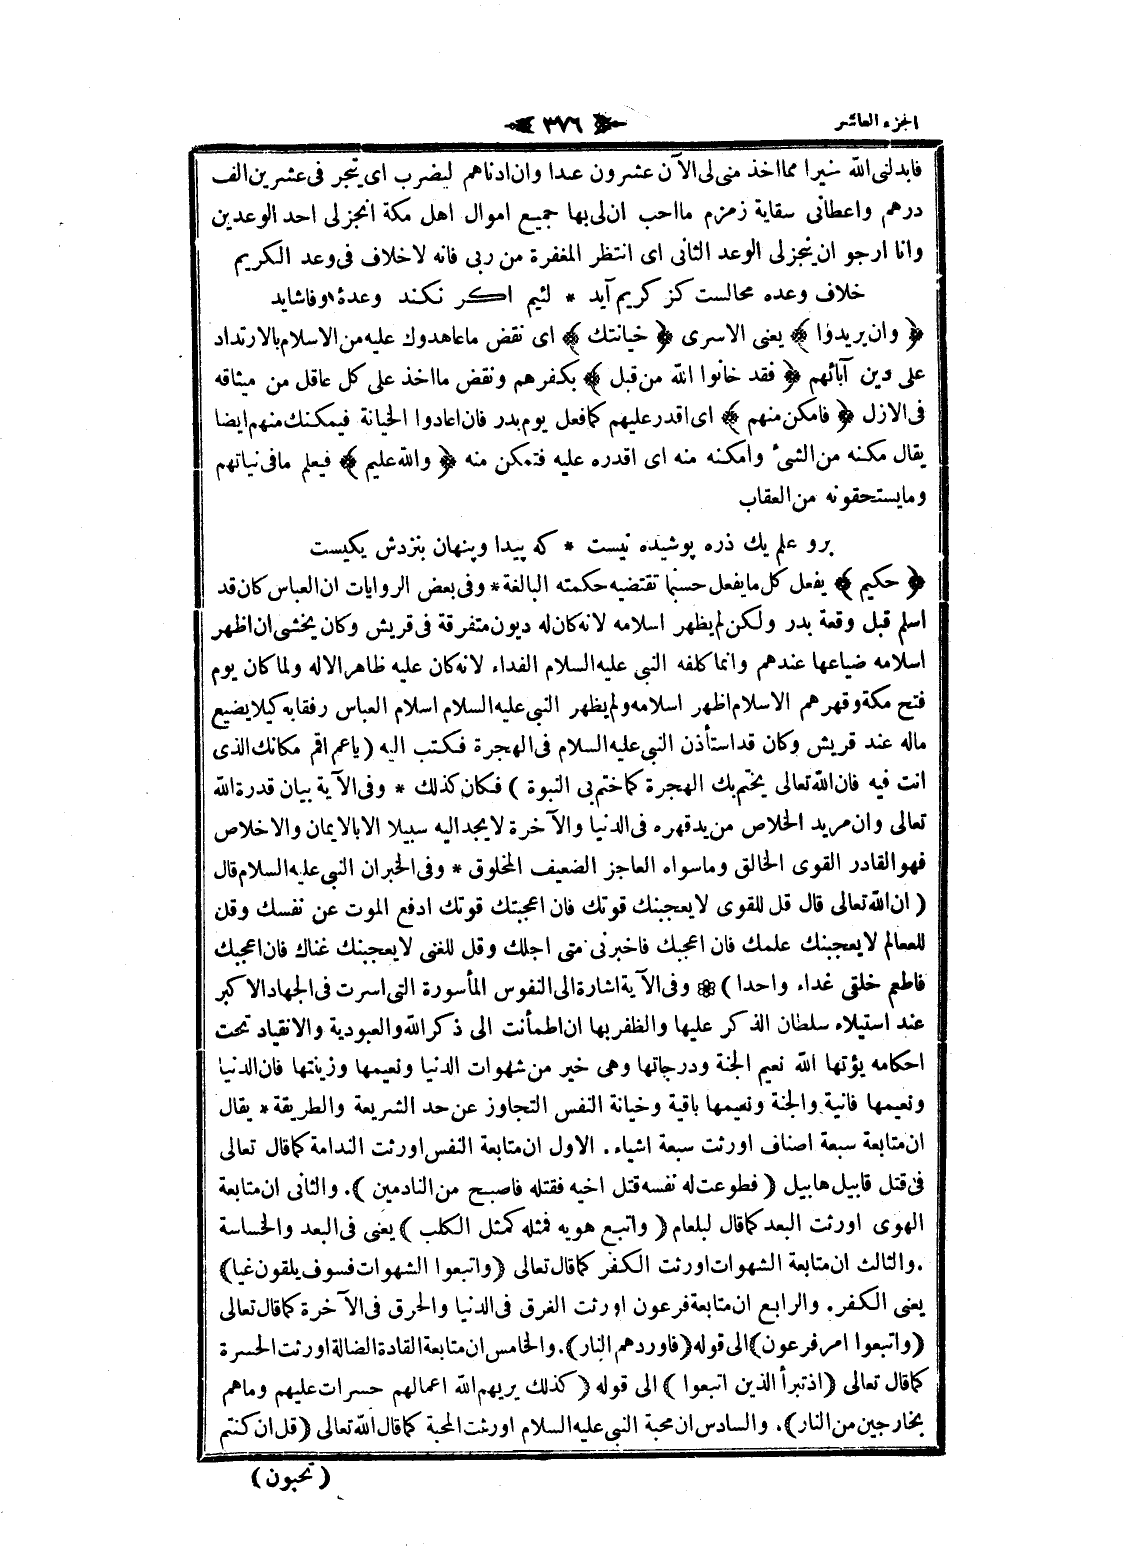 الجزء العاشر
٣٧٦
فابدلنى الله خيرا مما اخذ منى لى الآن عشرون عبدا وان ادناهم ليضرب اى يتجر فى عشرين الف
درهم واعطانى سقاية زمزم ما احب ان لى بها جميع اموال اهل مكة انجز لى احد الوعدين
وانا ارجو ان ينجز لى الوعد الثانى اى انتظر المغفرة من ربى فانه لا خلاف فى وعد الكريم
خلاف وعده محالست كز كريم آيد * لئيم اكر نكند وعدۀ وفاشايد
﴿ وان يريدوا ﴾ يعنى الاسرى ﴿ خيانتك ﴾ اى نقض ما عاهدوك عليه من الاسلام بالارتداد
على دين آبائهم ﴿ فقد خانوا الله من قبل ﴾ بكفرهم ونقض ما اخذ على كل عاقل من ميثاقه
فى الازل ﴿ فامكن منهم ﴾ اى اقدر عليهم كما فعل يوم بدر فان اعادوا الخيانة فيمكنك منهم ايضا
يقال مكنه من الشئ وامكنه منه اى اقدره عليه فتمكن منه ﴿ والله عليم ﴾ فيعلم ما فى نياتهم
وما يستحقونه من العقاب
برو علم يك ذره پوشيده نيست * كه پيدا وپنهان بنزدش يكيست
﴿ حكيم ﴾ يفعل كل ما يفعل حسبما تقتضيه حكمته البالغة * وفى بعض الروايات ان العباس كان قد
اسلم قبل وقعة بدر ولكن لم يظهر اسلامه لانه كان له ديون متفرقة فى قريش وكان يخشى ان اظهر
اسلامه ضياعها عندهم وانما كلفه النبى عليه السلام الفداء لانه كان عليه ظاهر الاله ولما كان يوم
فتح مكة وقهرهم الاسلام اظهر اسلامه ولم يظهر النبى عليه السلام اسلام العباس رفقا به كيلا يضيع
ماله عند قريش وكان قد استأذن النبى عليه السلام فى الهجرة فكتب اليه (ياعم اقم مكانك الذى
انت فيه فان الله تعالى يختم بك الهجرة كما ختم بى النبوة ) فكان كذلك * وفى الآية بيان قدرة الله
تعالى وان مريد الخلاص من يد قهره فى الدنيا والآخرة لا يجد اليه سبيلا الا بالايمان والاخلاص
فهو القادر القوى الخالق وما سواه العاجز الضعيف المخلوق * وفى الخبر ان النبى عليه السلام قال
( ان الله تعالى قال قل للقوى لا يعجبنك قوتك فان اعجبتك قوتك ادفع الموت عن نفسك وقل
للعالم لا يعجبنك علمك فان اعجبك فاخبرنى متى اجلك وقل للغنى لا يعجبنك غناك فان اعجبك
فاطعم خلقى غداء واحدا ) ❁ وفى الآية اشارة الى النفوس المأسورة التى اسرت فى الجهاد الاكبر
عند استيلاء سلطان الذكر عليها والظفر بها ان اطمأنت الى ذكر الله والعبودية والانقياد تحت
احكامه يؤتها الله نعيم الجنة ودرجاتها وهى خير من شهوات الدنيا ونعيمها وزينتها فان الدنيا
ونعيمها فانية والجنة ونعيمها باقية وخيانة النفس التجاوز عن حد الشريعة والطريقة * يقال
ان متابعة سبعة اصناف اورثت سبعة اشياء. الاول ان متابعة النفس اورثت الندامة كما قال تعالى
فى قتل قابيل هابيل ( فطوعت له نفسه قتل اخيه فقتله فاصبح من النادمين ). والثانى ان متابعة
الهوى اورثت البعد كما قال لبلعام ( واتبع هويه فمثله كمثل الكلب ) يعنى فى البعد والخساسة
.والثالث ان متابعة الشهوات اورثت الكفر كما قال تعالى (واتبعوا الشهوات فسوف يلقون غيا)
يعنى الكفر. والرابع ان متابعة فرعون اورثت الغرق فى الدنيا والحرق فى الآخرة كما قال تعالى
(واتبعوا امر فرعون) الى قوله (فاوردهم النار). والخامس ان متابعة القادة الضالة اورثت الحسرة
كما قال تعالى (اذ تبرأ الذين اتبعوا ) الى قوله ( كذلك يريهم الله اعمالهم حسرات عليهم وما هم
بخارجين من النار). والسادس ان محبة النبى عليه السلام اورثت المحبة كما قال الله تعالى ( قل ان كنتم
( تحبون )